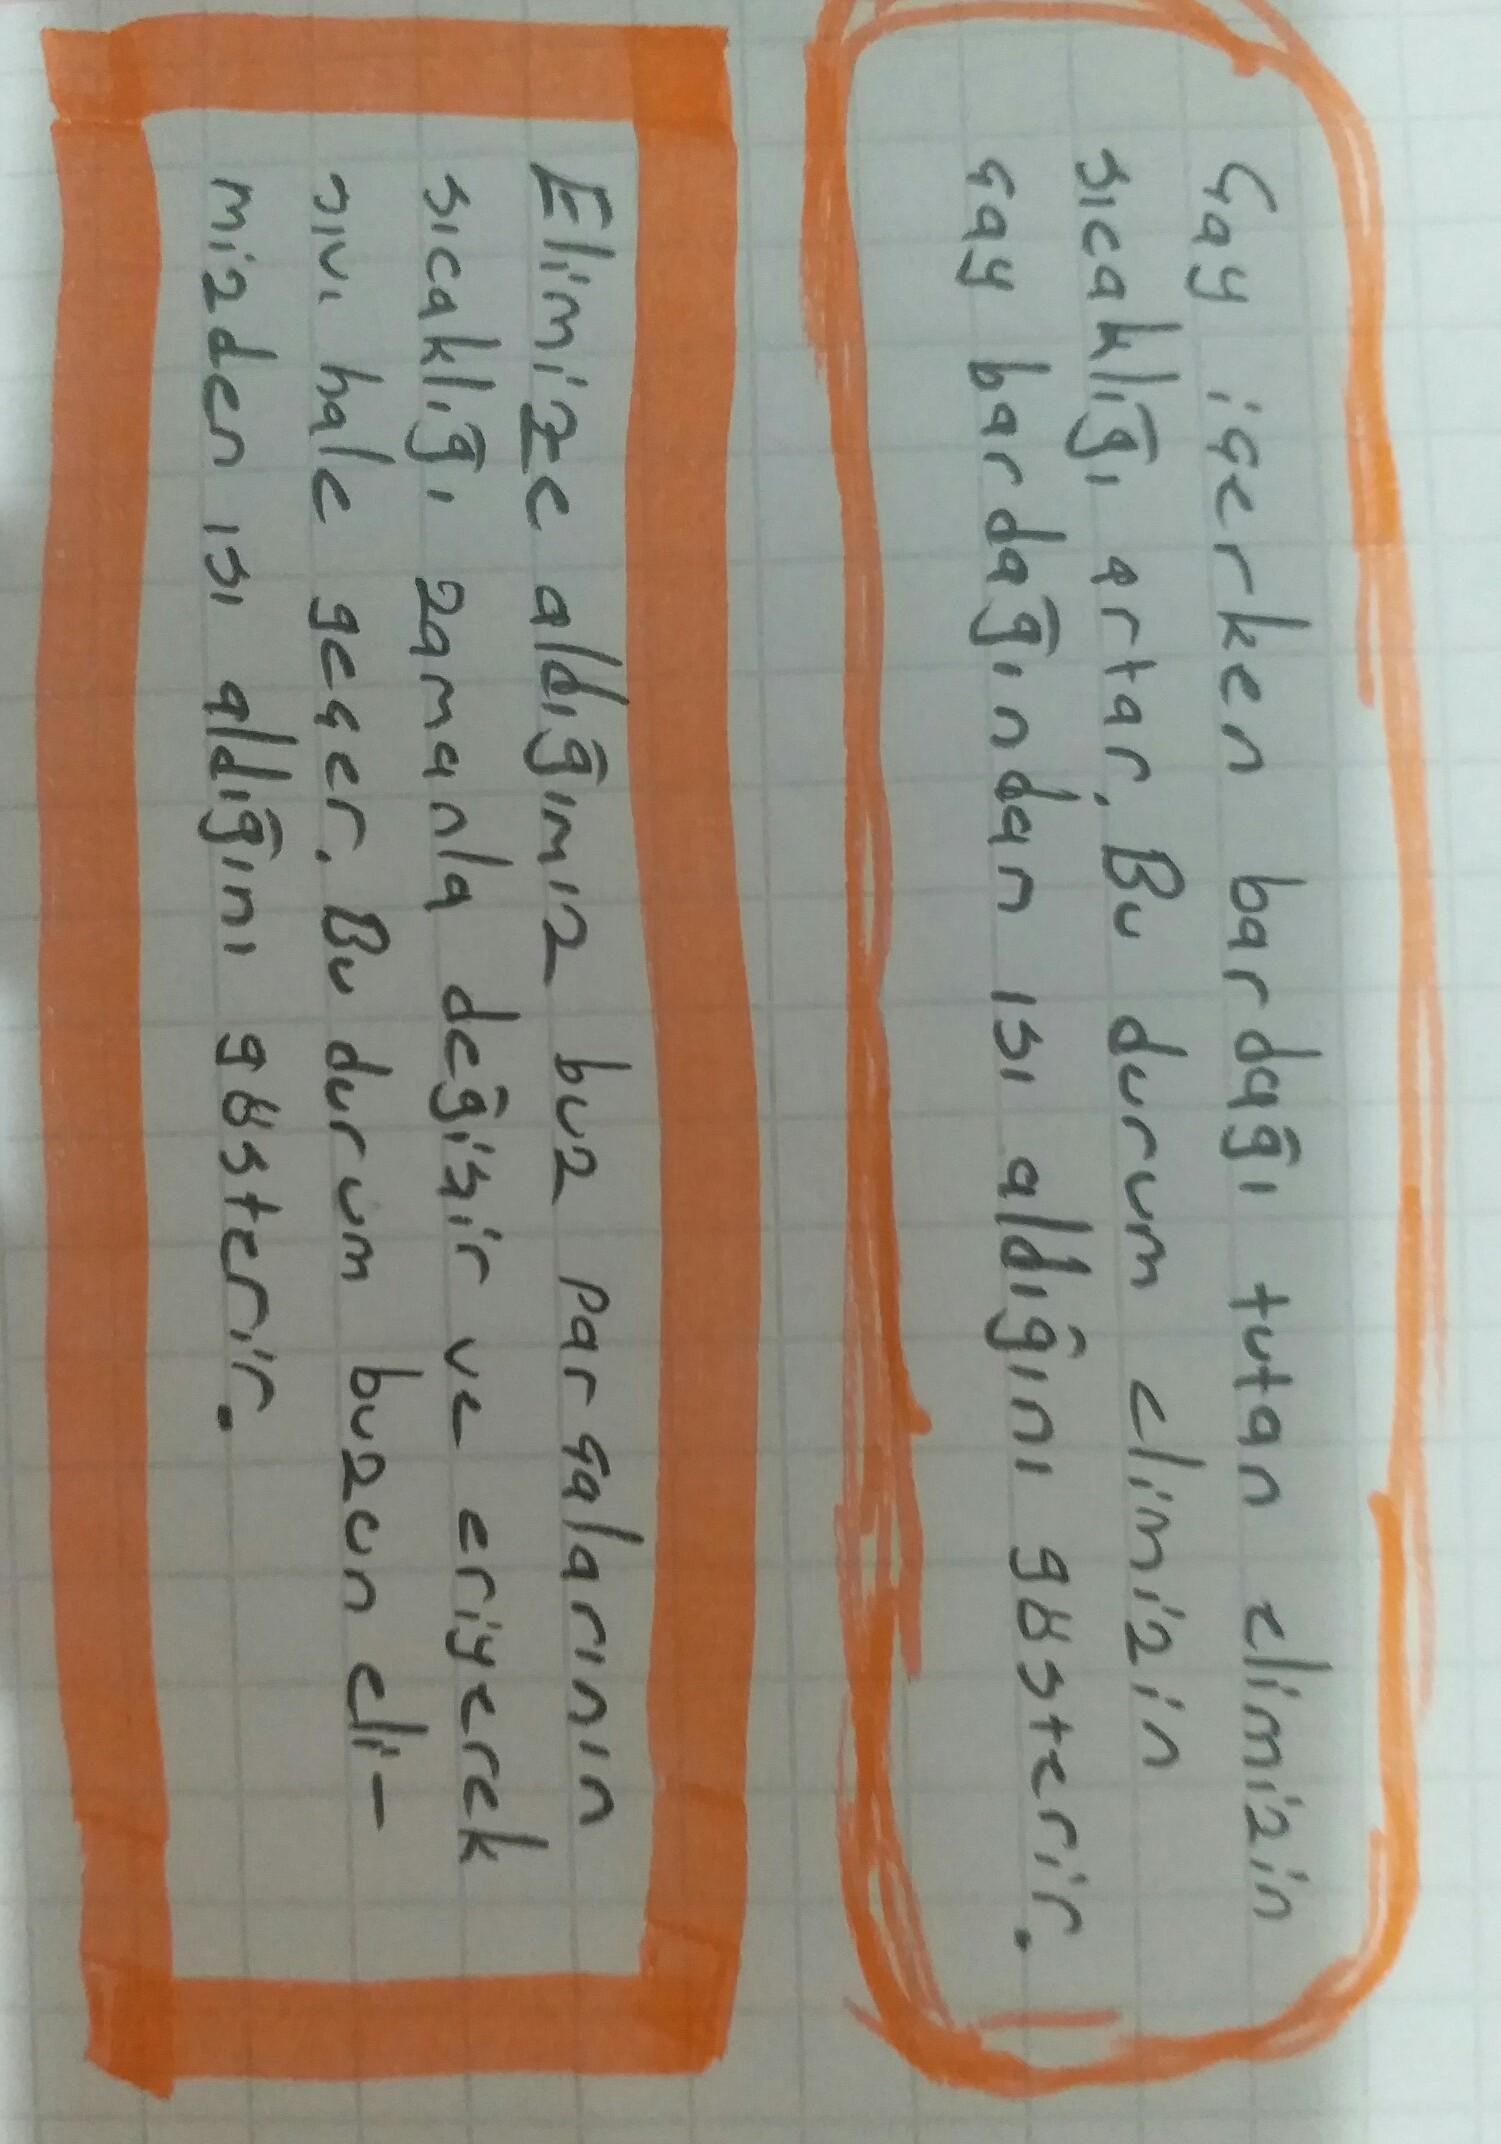 Çay içerken bardağı tutan elimizin
sıcaklığı artar. Bu durum elimizin
çay bardağından ısı aldığını gösterir.
Elimize aldığımız buz parçalarının
sıcaklığı zamanla değişir ve eriyerek
sıvı hale geçer. Bu durum buzun eli-
mizden ısı aldığını gösterir.